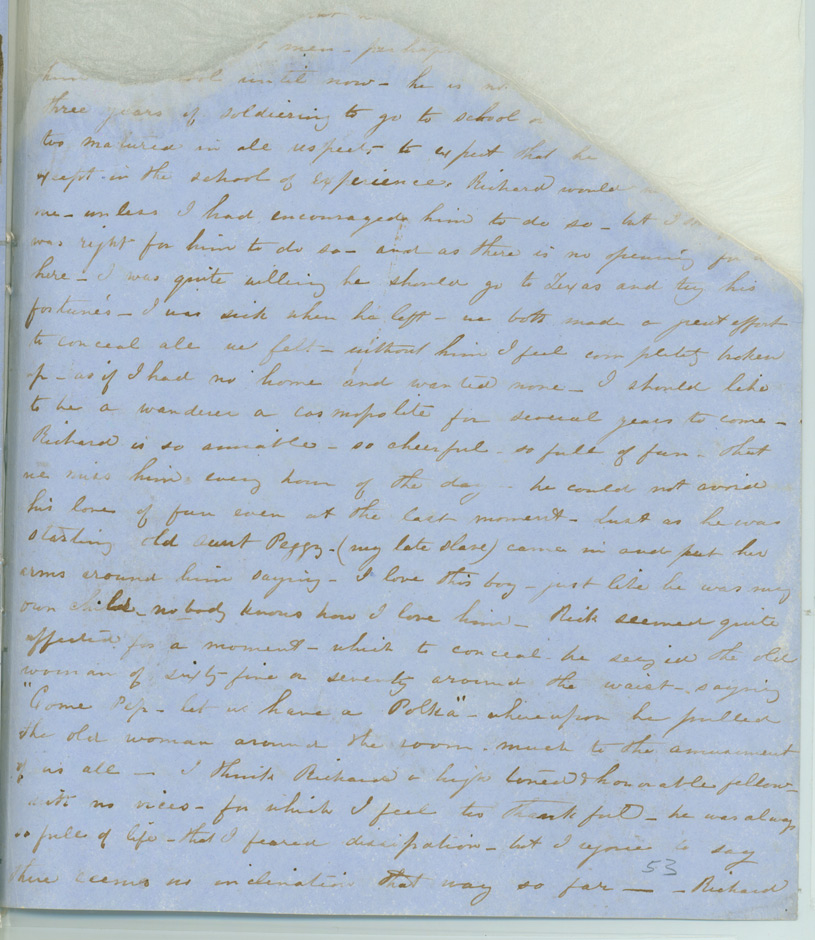 men - perhaps
until now - he is no
three years of soldiering to go to school o
too matured in all respects to expect that he
except in the school of Experience. Richard would
me - unless I had encouraged him to do so - but I
was right for him to do so - and as there is no opening for
here - I was quite willing he should go to Texas and try his
fortunes - I was sick when he left - we both made a great effort
to conceal all we felt - without him I feel completely broken
up - as if I had no home and wanted none - I should like
to be a wanderer a cosmopolite for several years to come -
Richard is so amiable - so cheerful - so full of fun - that
we miss him every hour of the day - he could not avoid
his love of fun even at the last moment - Just as he was
starting old aunt Peggy - (my late slave) came in and put her
arms around him saying - I love this boy - just like he was my
own child - nobody knows how I love him - Rick seemed quite
affected for a moment - which to conceal he seized the old
woman of sixty-five or seventy around the waist - saying
"Come Pep - let us have a Polka" - whereupon he pulled
the old woman around the room much to the amusement
of us all - I think Richard a high toned & honorable fellow -
with no vices - for which I feel too thankful - he was always
so full of life - that I feared dissipation - but I rejoice to say
there seems no inclination that way so far - - Richard
53